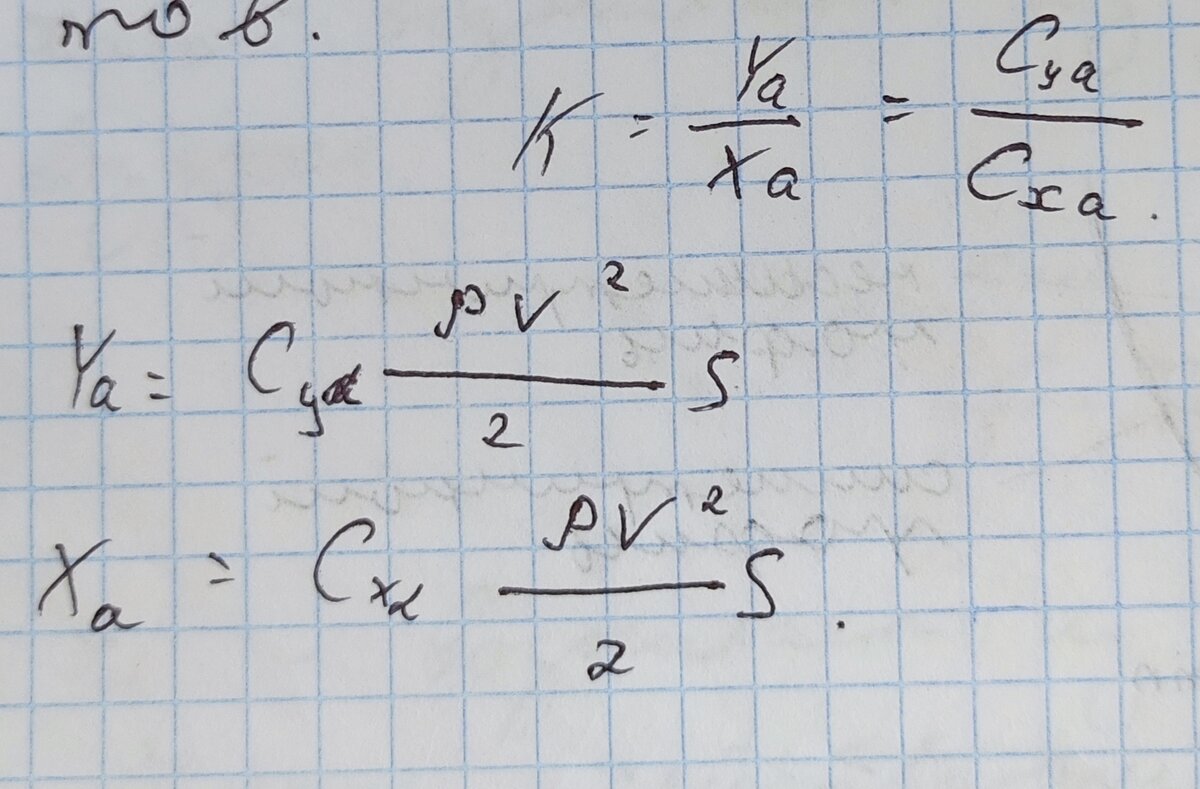 тов.
K = Ya / Xa = Cya / Cxa.
Ya = Cyα ρV² / 2 S
Xa = Cxα ρV² / 2 S.